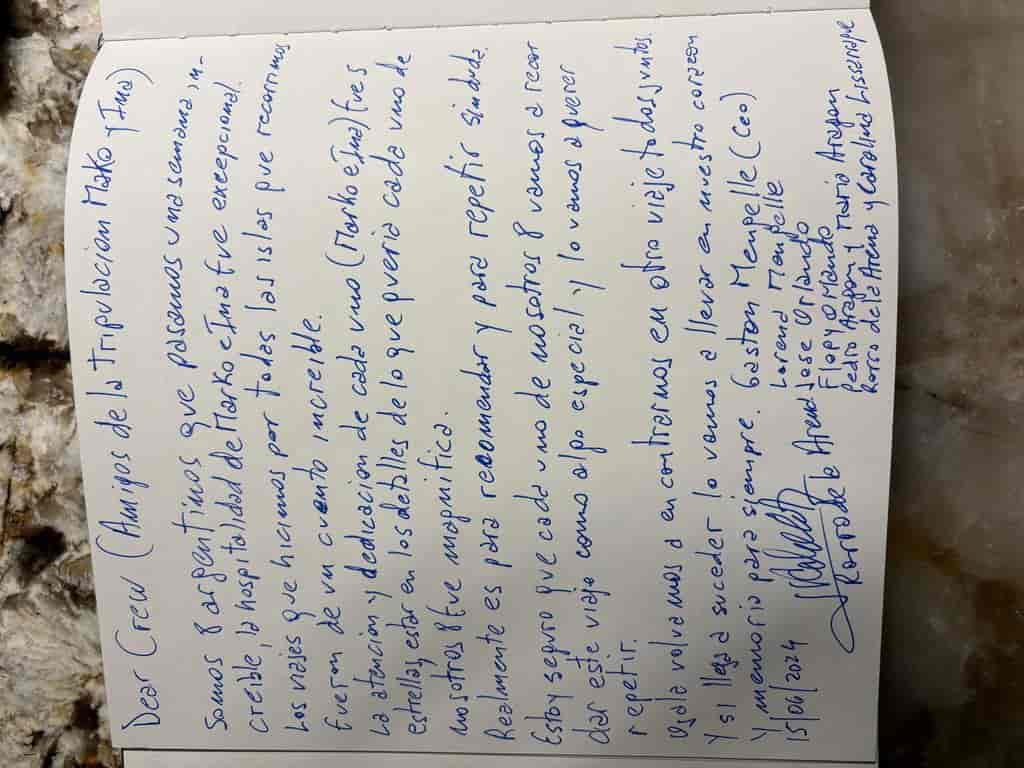 Dear Crew (Amigos de la tripulacion Marko y Ima)
Somos 8 argentinos que pasamos una semana, in-
creible, la hospitalidad de Marko e Ima fue excepcional.
Los viajes que hicimos por todas las islas que recorrimos
fueron de un cuento increible.
La atencion y dedicacion de cada uno (Marko e Ima) fue 5
estrellas, estar en los detalles de lo que queria cada uno de
nosotros 8 fue magnifica.
Realmente es para recomendar y para repetir sin duda.
Estoy seguro que cada uno de nosotros 8 vamos a recor
dar este viaje como algo especial y lo vamos a querer
repetir.
Ojala volvamos a encontrarnos en otro viaje todos juntos.
Y si llega suceder lo vamos a llevar en nuestro corazon
Y memoria para siempre. Gaston Menpelle (Ceo)
Lorena Menpelle
15/06/2024
Jose Orlando
Flopy Orlando
Pedro Aragon y Maria Aragon
Horro de la Arena y Carolina
Horro de la Arena